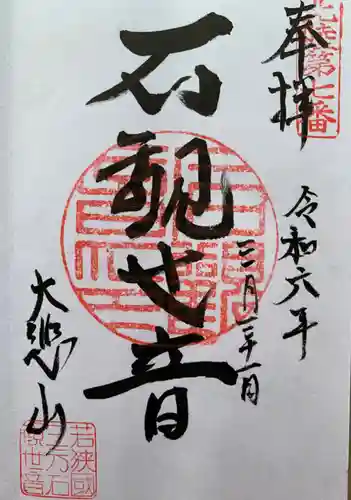 奉拝
第七番
令和六年
三月二十一日
石観世音
大悲山
若狹國
三方石
觀世音